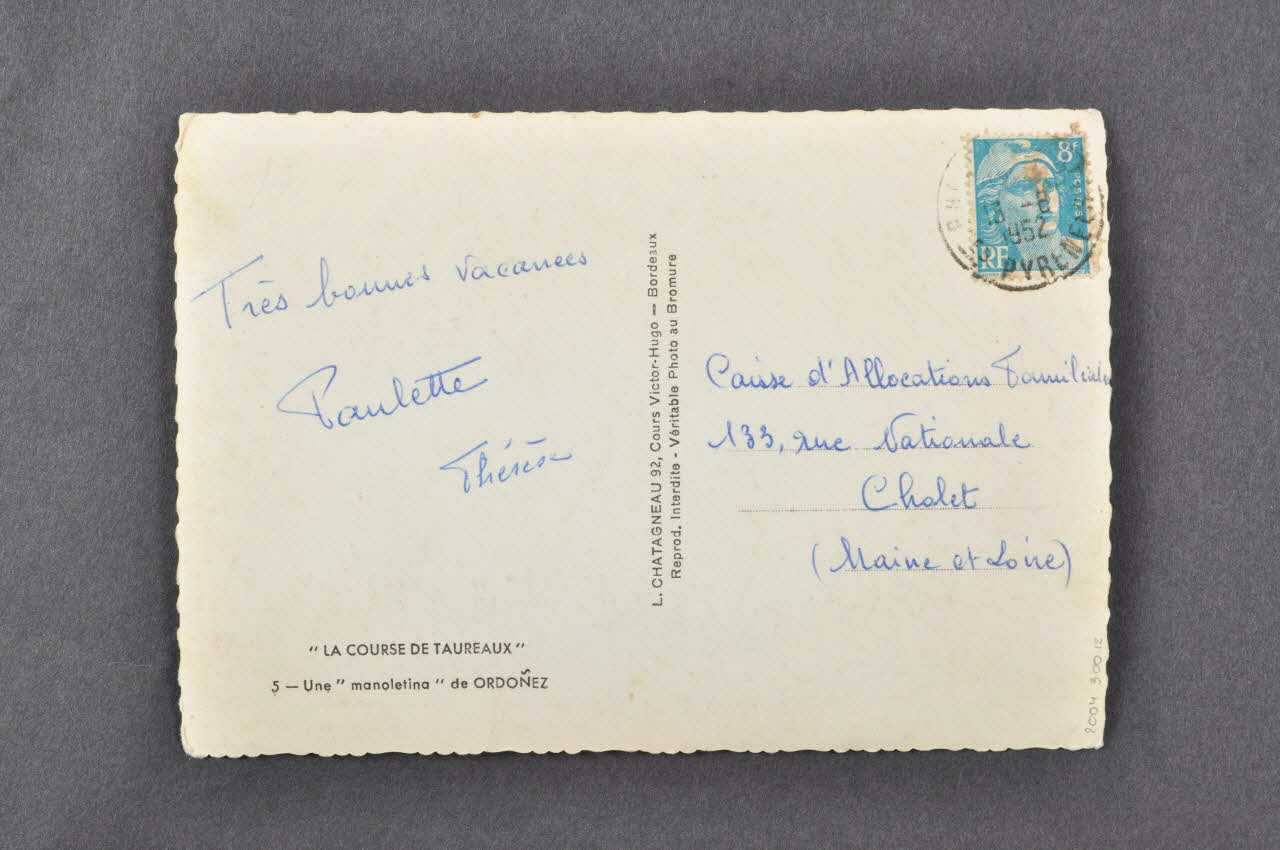 Très bonnes vacances
Paulette
Thérèse
" LA COURSE DE TAUREAUX "
5 — Une " manoletina " de ORDOÑEZ
L. CHATAGNEAU 92, Cours Victor-Hugo — Bordeaux
Reprod. Interdite - Véritable Photo au Bromure
8F
POSTES
RF
1952
PYRENEES
Caisse d'Allocations Familiales
133, rue Nationale
Cholet
(Maine et Loire)
2004 300 12